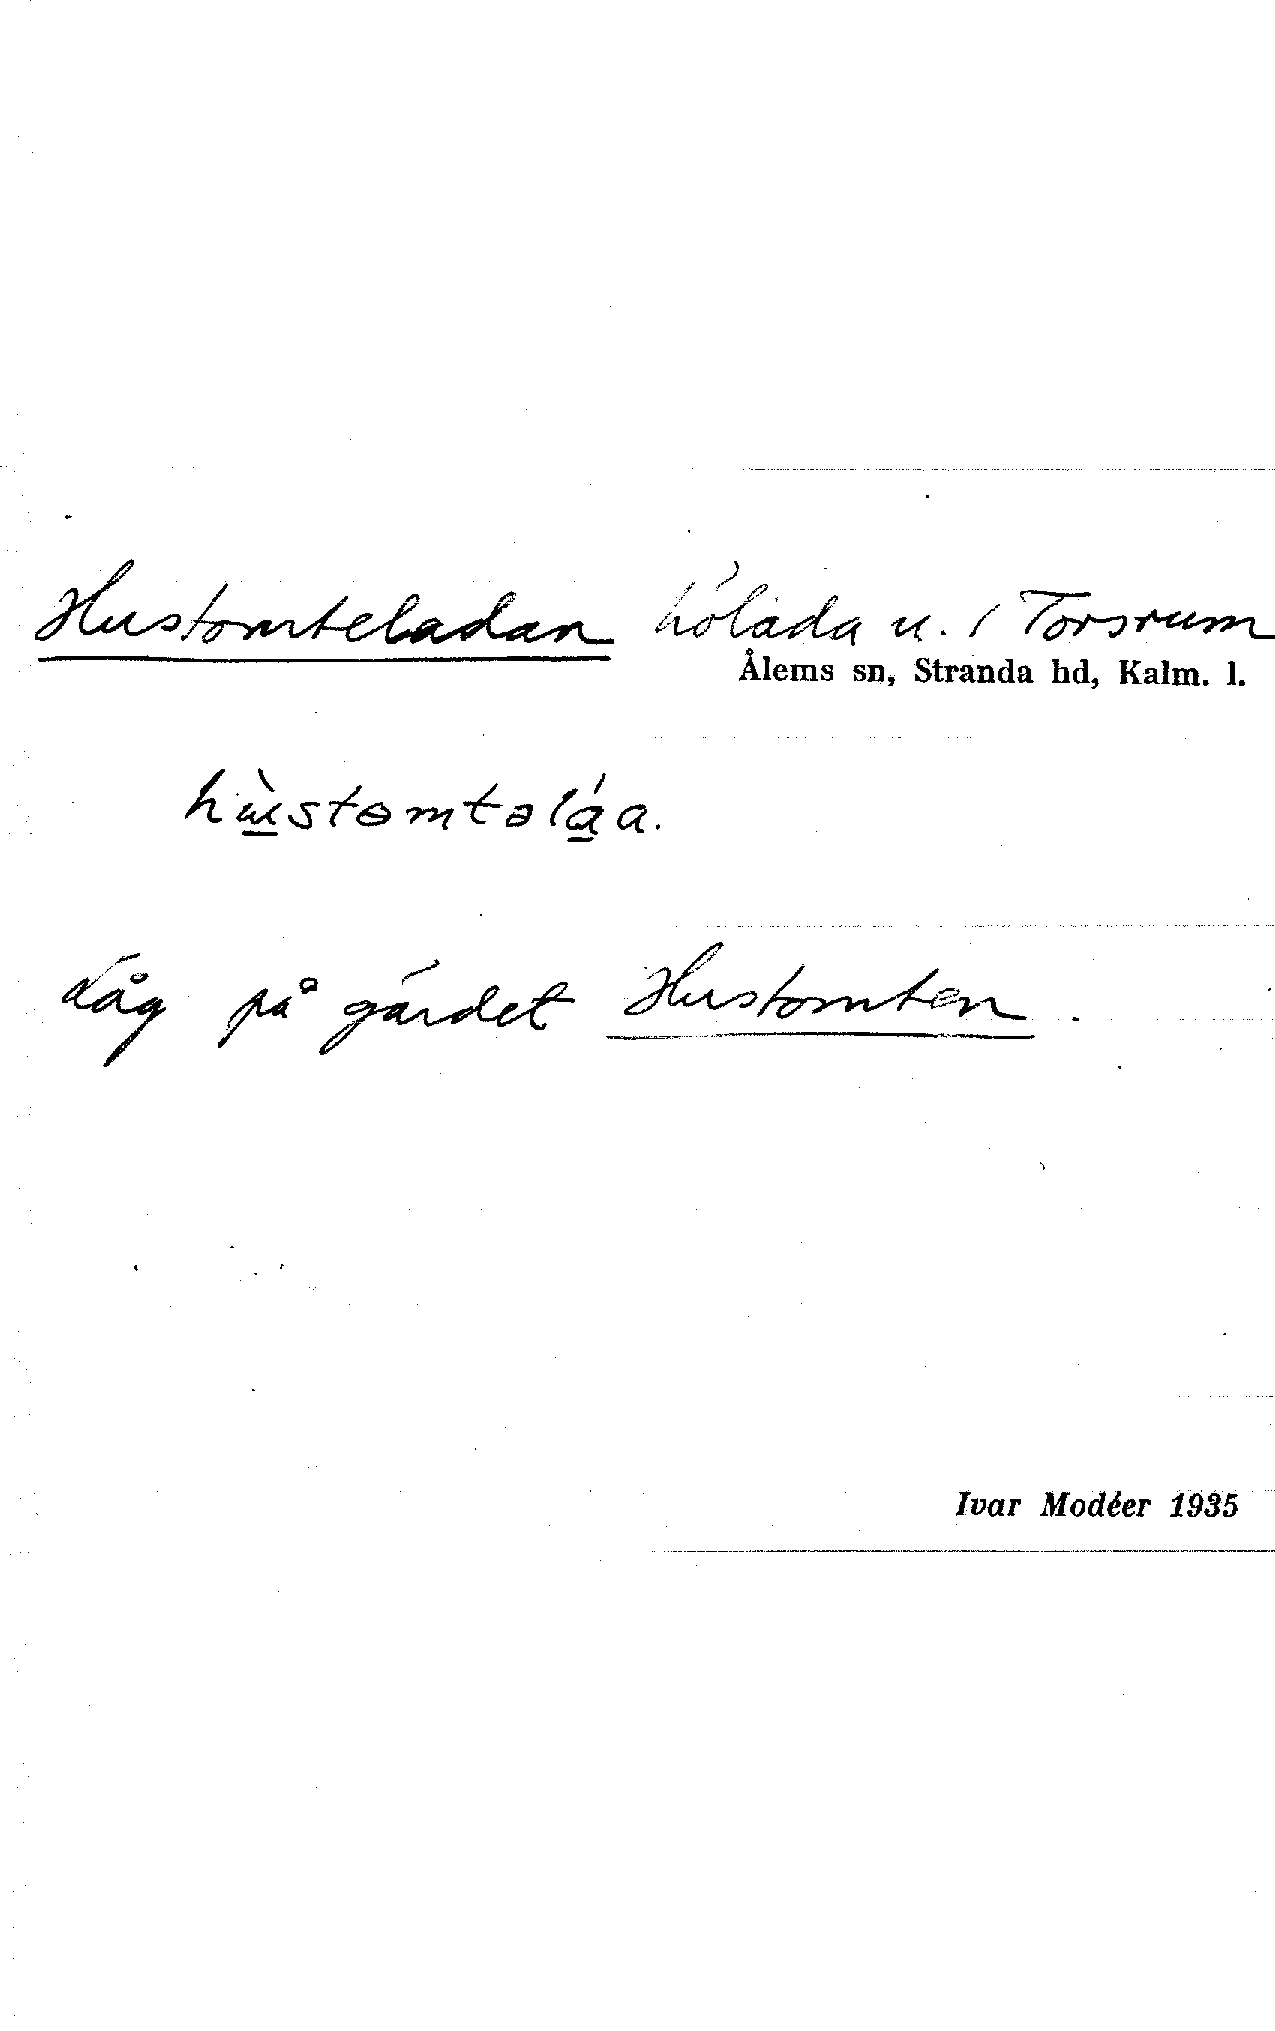 Hustomteladan hölada u. 1 Torsrum
Ålems sn, Stranda hd, Kalm. l.
hùstɵmtəláa.
Låg på gärdet Hustomten.
Ivar Modéer 1935